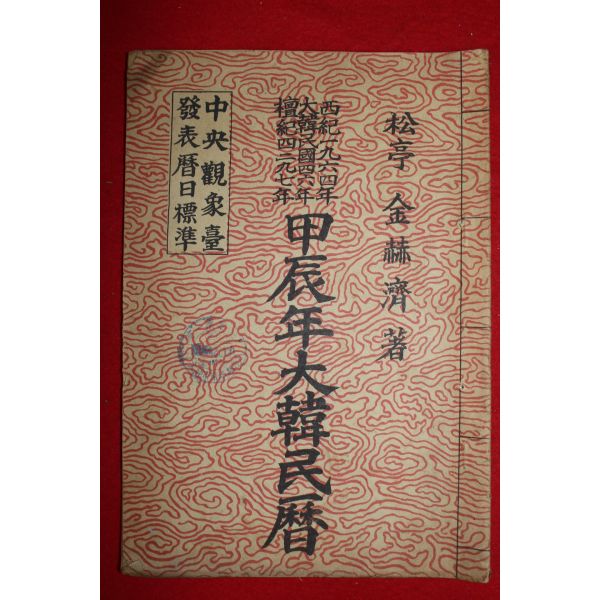 松亭 金赫濟 著
西紀一九六四年
大韓民國四六年
檀紀四二九七年
甲辰年大韓民曆
中央觀象臺
發表曆日標準